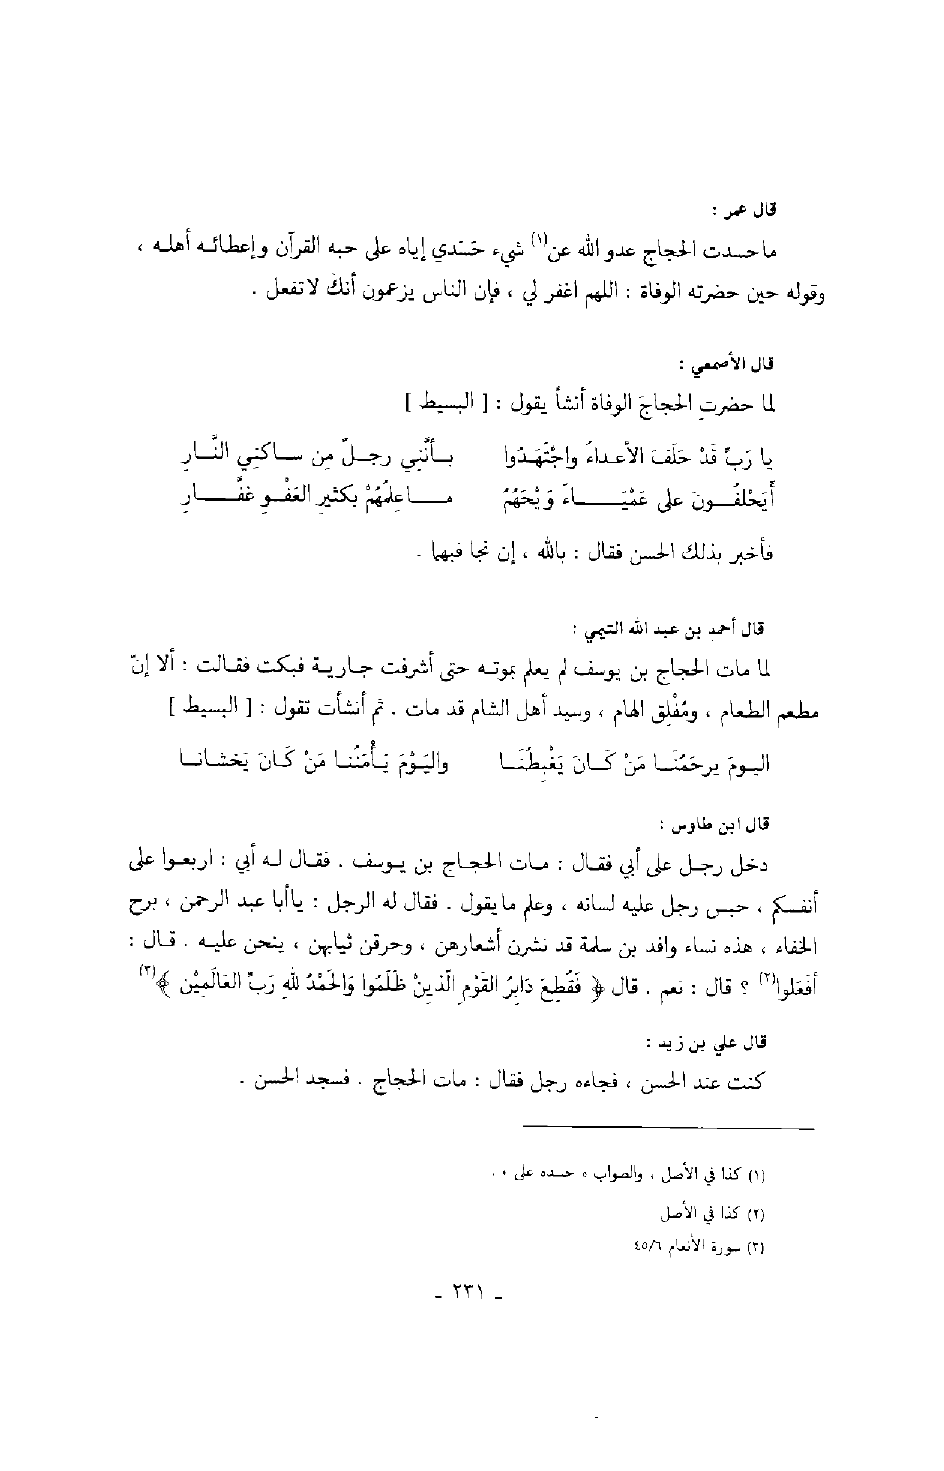 قال عمر :
ما حسدت الحجاج عدو الله عن(١) شيء حَسَدي إياه على حبه القرآن وإعطائه أهله ،
وقوله حين حضرته الوفاة : اللهم اغفر لي ، فإن الناس يزعمون أنك لا تفعل .
قال الأصمعي :
لما حضرتِ الحجاجَ الوفاة أنشأ يقول : [ البسيط ]
يا رَبِّ قَدْ حَلَفَ الأعداءُ واجْتَهَدُوا بأنَّنِي رجلٌ مِن ساكنِي النَّارِ
أَيَحْلفُونَ على عَمْيَاءَ وَيْحَهُمُ ما عِلمُهُمْ بكثيرِ العَفْوِ غفَّارِ
فأخبر بذلك الحسن فقال : بالله ، إن نجا فبهما .
قال أحمد بن عبد الله التيمي :
لما مات الحجاج بن يوسف لم يعلم بموته حتى أشرفت جارية فبكت فقالت : ألا إنّ
مطعم الطعام ، ومُفْلِق الهام ، وسيد أهل الشام قد مات . ثم أنشأت تقول : [ البسيط ]
اليومَ يرحَمُنَا مَنْ كَانَ يَغْبِطُنَا واليَوْمَ يَأْمَنُنا مَنْ كَانَ يَخشانا
قال ابن طاوس :
دخل رجل على أبي فقال : مات الحجاج بن يوسف . فقال له أبي : اربعوا على
أنفسكم ، حبس رجل عليه لسانه ، وعلم ما يقول . فقال له الرجل : يا أبا عبد الرحمن ، برح
الخفاء ، هذه نساء وافد بن سلمة قد نشرن أشعارهن ، وحرقن ثيابهن ، ينحن عليه . قال :
أفَعَلوا(٢) ؟ قال : نعم . قال ﴿ فَقُطِعَ دَابِرُ القَوْمِ الَّذِينَ ظَلَمُوا وَالحَمْدُ للهِ رَبِّ العَالَمِيْن ﴾(٣)
قال علي بن زيد :
كنت عند الحسن ، فجاءه رجل فقال : مات الحجاج . فسجد الحسن .
(١) كذا في الأصل ، والصواب « حسده على » .
(٢) كذا في الأصل
(٣) سورة الأنعام ٤٥/٦
ـ ٢٣١ ـ